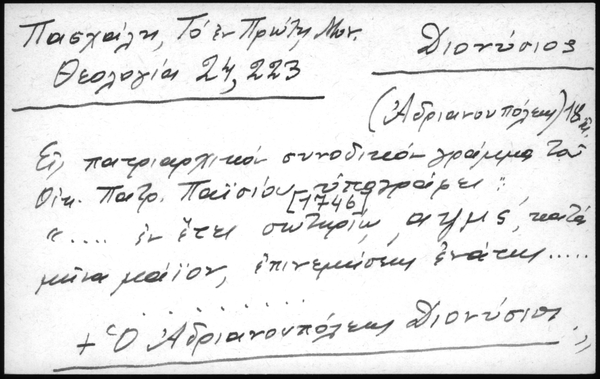 Πασχάλη, Τό ἐν Πρώτῃ Μον.
Θεολογία 24, 223
Διονύσιος
(Ἀδριανουπόλεως) 18 αἰ.
Εἰς πατριαρχικόν συνοδικόν γράμμα τοῦ
Οἰκ. Πατρ. Παϊσίου ὑπογράφει:
[1746]
"..... ἐν ἔτει σωτηρίῳ, αψμς, κατά
μῆνα μάϊον, ἐπινεμήσεως ἐνάτης.....
. . . . . . . .
+ Ὁ Ἀδριανουπόλεως Διονύσιος"